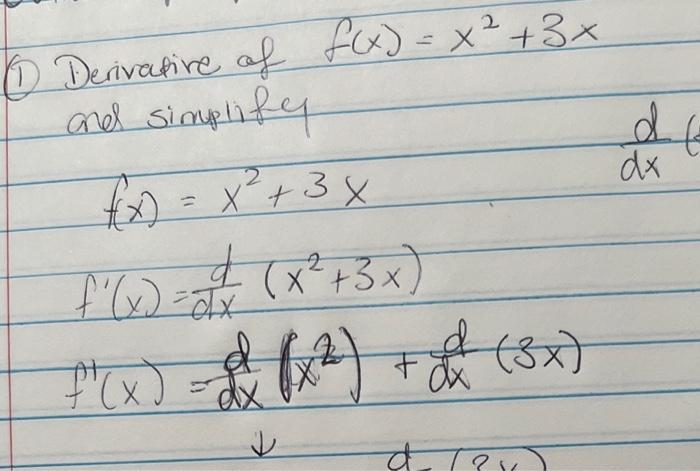 ① Derivative of f(x) = x² + 3x
and simplify
d/dx (
f(x) = x² + 3x
f'(x) = d/dx (x² + 3x)
f'(x) = d/dx (x²) + d/dx (3x)
↓
d (3x)